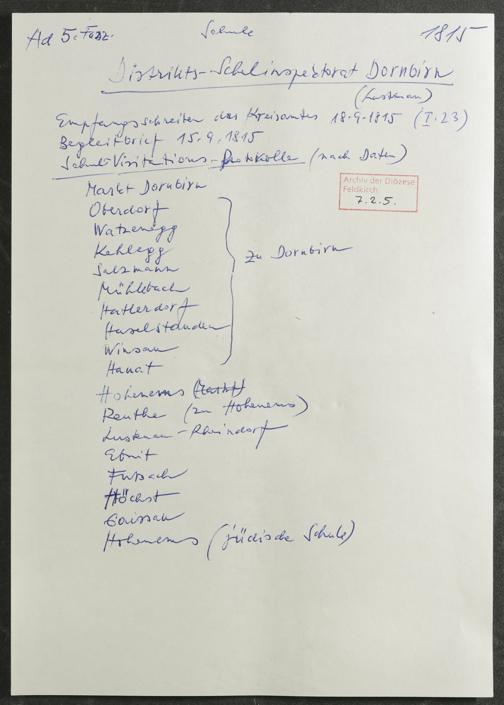 Ad 5. Fasz. Schule 1815
Distrikts-Schulinspektorat Dornbirn
(Lustenau)
Empfangsschreiben des Kreisamtes 18.9.1815 (I.23)
Begleitbrief 15.9.1815
Schul-Visitations-Protokolle (nach Daten)
Archiv der Diözese
Feldkirch
7.2.5.
Markt Dornbirn
Oberdorf
Watzenegg
Kehlegg
Salzmann
zu Dornbirn
Mühlebach
Hatlerdorf
Haselstauden
Winsau
Hanat
Hohenems (Markt)
Reuthe (zu Hohenems)
Lustenau-Rheindorf
Ebnit
Fußach
Höchst
Gaissau
Hohenems (jüdische Schule)